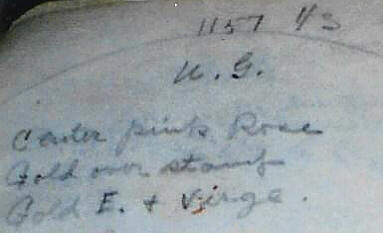 1157 43
U. G.
Center pink Rose
Gold over stamp
Gold E. + Verge.